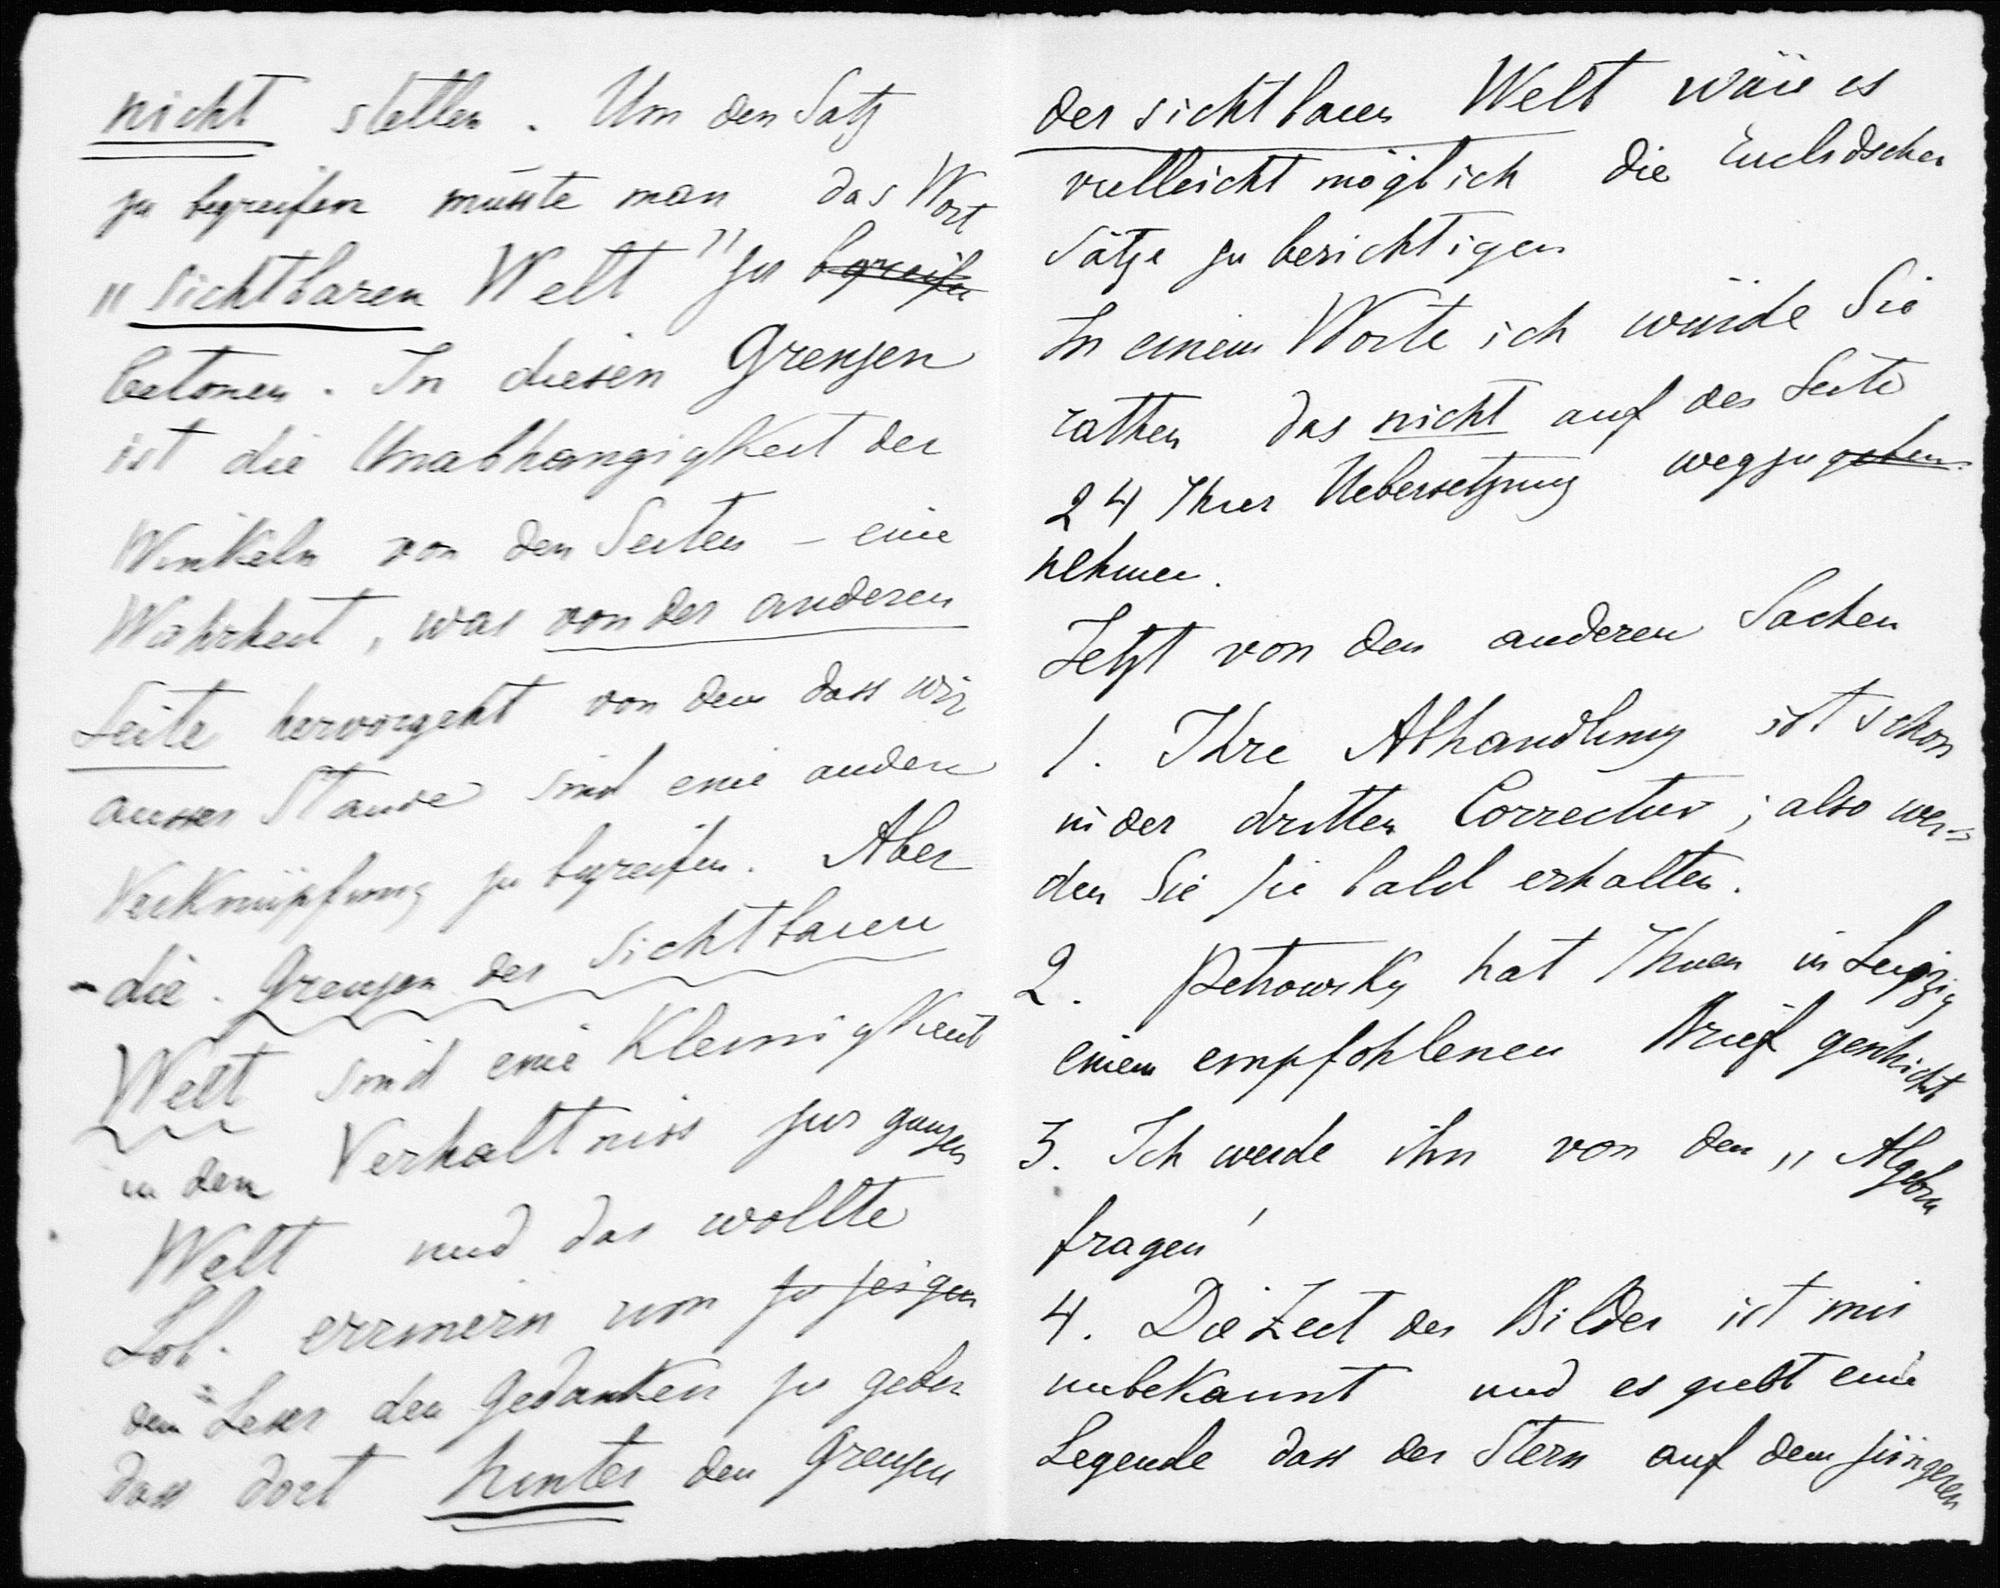 nicht stellen. Um den Satz
zu begreifen müsste man das Wort
„sichtbaren Welt" zu begreifen
betonen. In diesen Grenzen
ist die Unabhangigkeit der
Winkeln von den Seiten – eine
Wahrheit, was von der anderen
Seite hervorgeht von dem dass wir
ausser Stande sind eine andere
Verknüpfung zu begreifen. Aber
die Grenzen der sichtbaren
Welt sind eine Kleinigkeit
in dem Verhaltniss zur ganzen
Welt und das wollte
Lob. erinnern um zu zeigen
dem Leser den Gedanken zu geben
dass dort hinter den Grenzen
der sichtbaren Welt wäre es
vielleicht möglich die Euclidschen
Sätze zu berichtigen
In einem Worte ich würde Sie
rathen das nicht auf der Seite
24 Ihrer Uebersetzung wegzugeben
nehmen.
Jetzt von den anderen Sachen
1. Ihre Abhandlung ist schon
in der dritten Correctur; also wer-
den Sie sie bald erhalten.
2. Petrowsky hat Ihnen in Leipzig
einem empfohlenen Brief geschickt
3. Ich werde ihn von den „Algebra
fragen
4. Die Zeit der Bilder ist mir
unbekannt und es giebt eine
Legende dass der Stern auf dem jüngeren